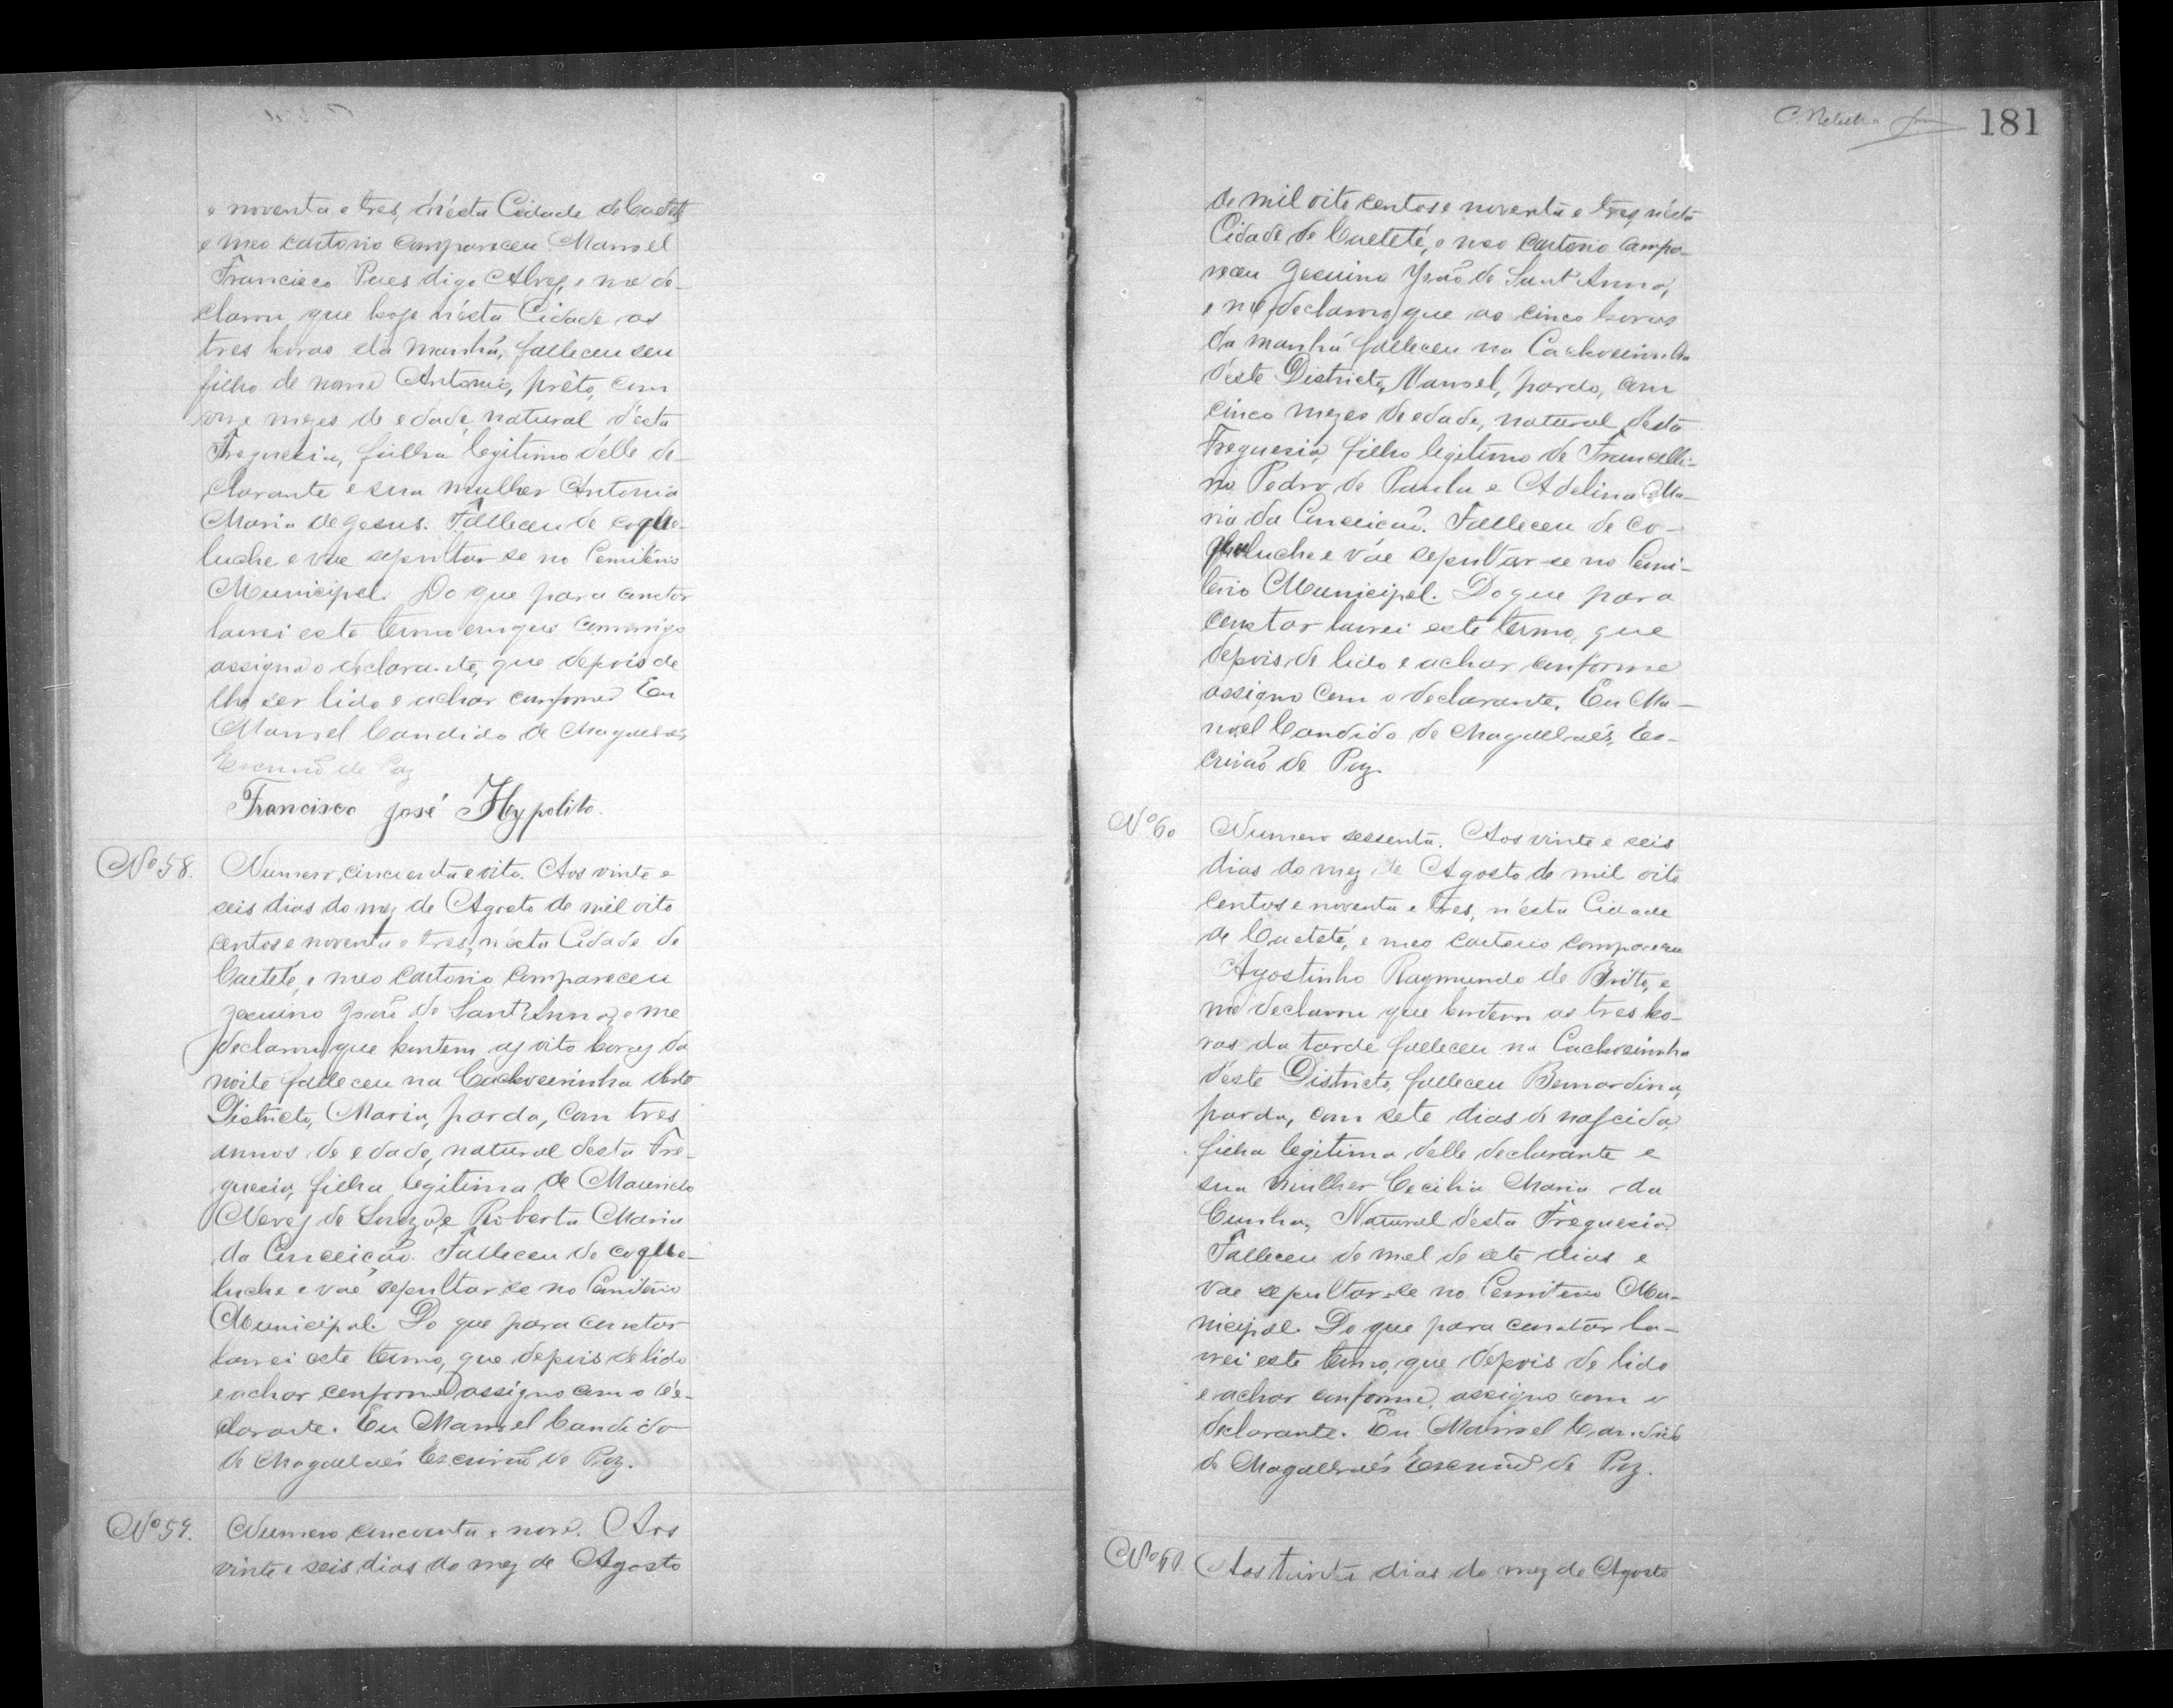 e noventa e tres, n'ésta Cidade de Caeteté
e meo cartorio compareceu Manoel
Francisco Paes digo Alves, e me de-
clarou que hoje n'ésta Cidade as
tres horas da manhã, falleceu seu
filho de nome Antonio, prêto, com
onze mezes de edade, natural d'ésta
Freguesia, filho legitimo d'elle de-
clarante e sua mulher Antonia
Maria de Jesus. Falleceu de coque-
luche e vae sepultar-se no Cemiterio
Municipal. Do que para constar
lavrei este termo em que commigo
assigna o declarante, que depois de
lhe ser lido e achar conforme. Eu
Manoel Candido de Magalhães
Escrivão de Paz
Francisco José Hypolito.
Nº 58. Numero cincoenta e oito. Aos vinte e
seis dias do mez de Agosto de mil oito
centos e noventa e tres, n'ésta Cidade de
Caeteté, e meo cartorio compareceu
Jesuino João de Sant'Anna, e me
declarou que hontem as oito horas da
noite falleceu na Cachoeirinha deste
Districto, Maria, parda, com tres
annos de edade, natural d'ésta Fre-
guesia, filha legitima de Mauricio
Neves de Souza, e Roberta Maria
da Conceição. Falleceu de coque-
luche e vae sepultar-se no Cemiterio
Municipal. Do que para constar
lavrei este termo, que depois de lido
e achar conforme assigno com o de-
clarante. Eu Manoel Candido
de Magalhães Escrivão de Paz.
Nº 59. Numero cincoenta e nove. Aos
vinte e seis dias do mez de Agosto
181
de mil oito centos e noventa e tres n'ésta
Cidade de Caeteté, e meo cartorio compa-
receu Jesuino João de Sant'Anna,
e me declarou que as cinco horas
da manhã falleceu na Cachoeirinha
d'éste Districto, Manoel, pardo, com
cinco mezes de edade, natural d'ésta
Freguesia, filho legitimo de Francelli-
no Pedro de Paula e Adelina Ma-
ria da Conceicão. Falleceu de co-
queluche e váe sepultar-se no Cemi-
terio Municipal. Do que para
constar lavrei este termo, que
depois de lido e achar conforme
assigno com o declarante. Eu Ma-
noel Candido de Magalhães, Es-
crivão de Paz.
Nº 60 Numero sessenta. Aos vinte e seis
dias do mez de Agosto de mil oito
centos e noventa e tres, n'ésta Cidade
de Caeteté, e meo cartorio compareceu
Agostinho Raymundo de Brito, e
me declarou que hontem as tres ho-
ras da tarde falleceu na Cachoeirinha
d'éste Districto, falleceu Bernardina,
parda, com sete dias de nascida,
filha legitima d'elle declarante e
sua mulher Cecilia Maria da
Cunha, Natural d'ésta Freguesia.
Falleceu de mal de sete dias e
vae sepultar-se no Cemiterio Mu-
nicipal. Do que para constar la-
vrei este termo, que depois de lido
e achar conforme, assigno com o
declarante. Eu Manoel Candido
de Magalhães Escrivão de Paz.
Nº 61. Aos trinta dias do mez de Agosto